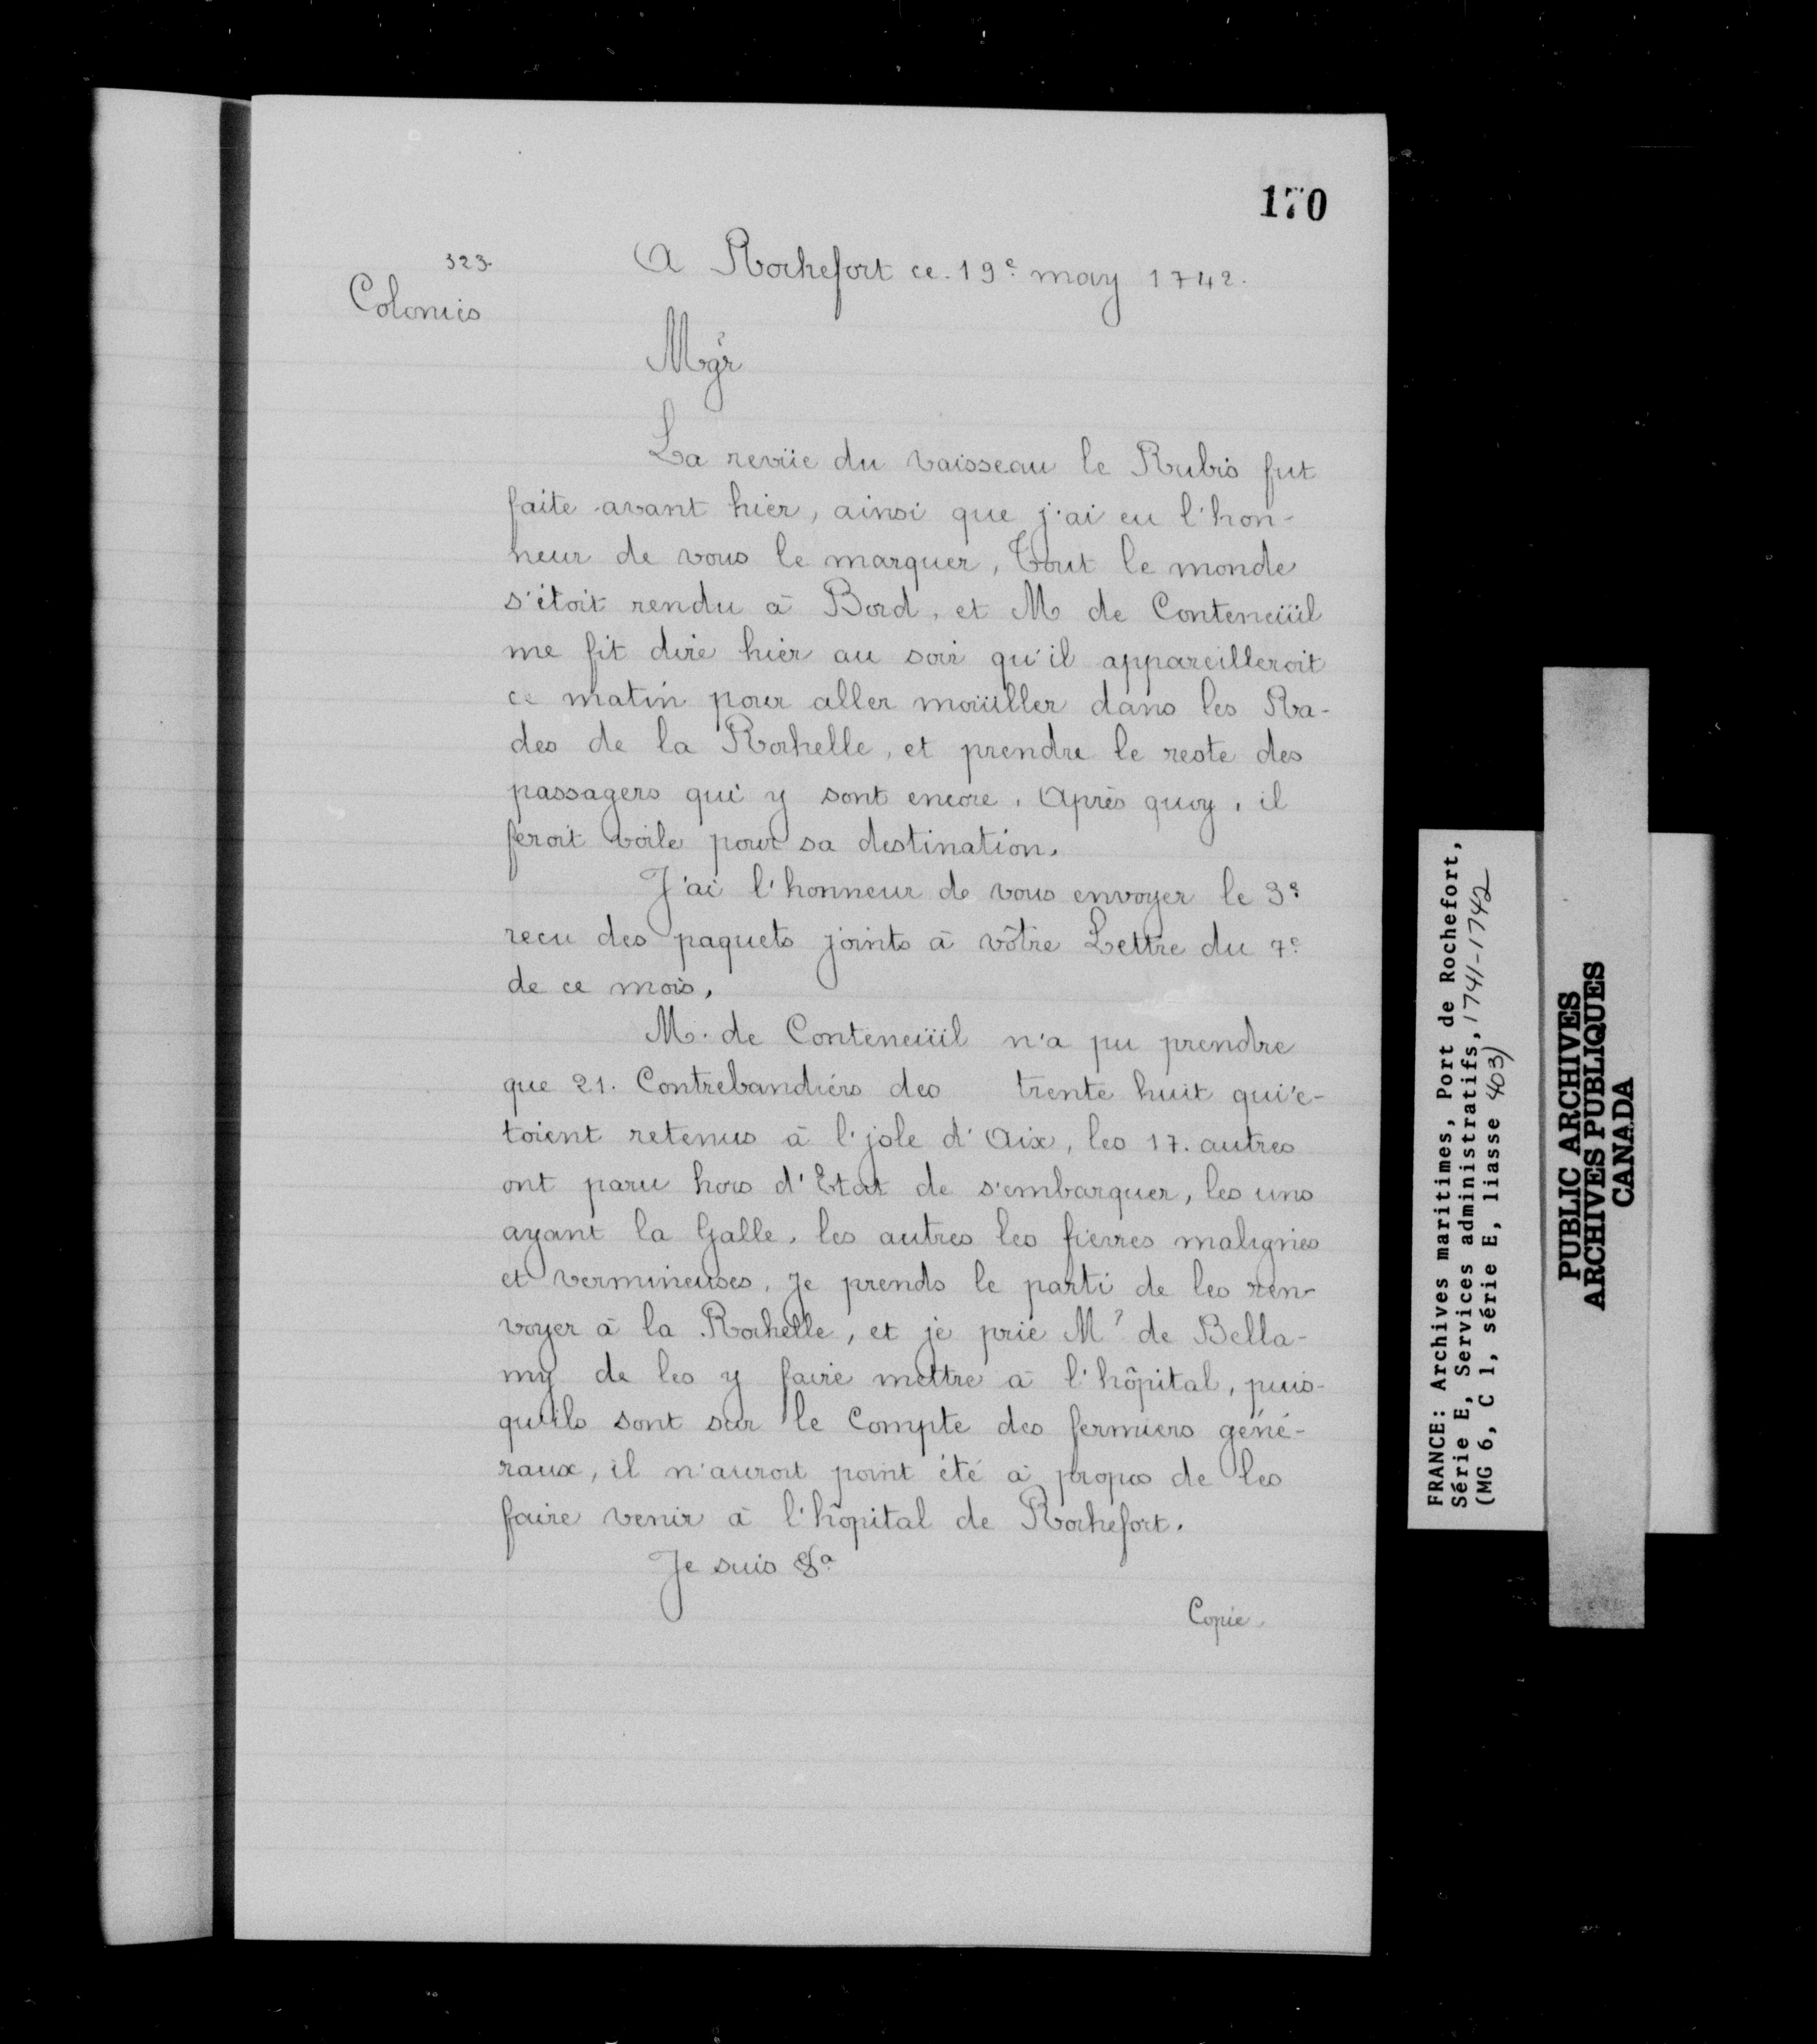 170
323.
Colonies
A Rochefort ce. 19e may 1742.
Mgr
La revüe du vaisseau le Rubis fut
faite avant hier, ainsi que j'ai eu l'hon-
neur de vous le marquer, Tout le monde
s'étoit rendu à Bord, et M de Conteneüil
me fit dire hier au soir qu'il appareilleroit
ce matin pour aller moüiller dans les Ra-
des de la Rochelle, et prendre le reste des
passagers qui y sont encore. Après quoy, il
feroit voile pour sa destination.
J'ai l'honneur de vous envoyer le 3e
recu des paquets joints à vôtre Lettre du 7e
de ce mois.
M. de Conteneüil n'a pu prendre
que 21. Contrebandiérs des trente huit qui'e-
toient retenus à l'jsle d'Aix, les 17. autres
ont paru hors d'Etat de s'embarquer, les uns
ayant la Galle, les autres les fievres malignes
et vermineuses. Je prends le parti de les ren-
voyer à la Rochelle, et je prie Mr de Bella-
my de les y faire mettre à l'hôpital, puis-
qu'ils sont sur le Compte des fermiers géné-
raux, il n'auroit point été à propos de les
faire venir à l'hôpital de Rochefort.
Je suis &a
Copie.
FRANCE: Archives maritimes, Port de Rochefort,
Série E, Services administratifs, 1741-1742
(MG 6, C 1, série E, liasse 403)
PUBLIC ARCHIVES
ARCHIVES PUBLIQUES
CANADA